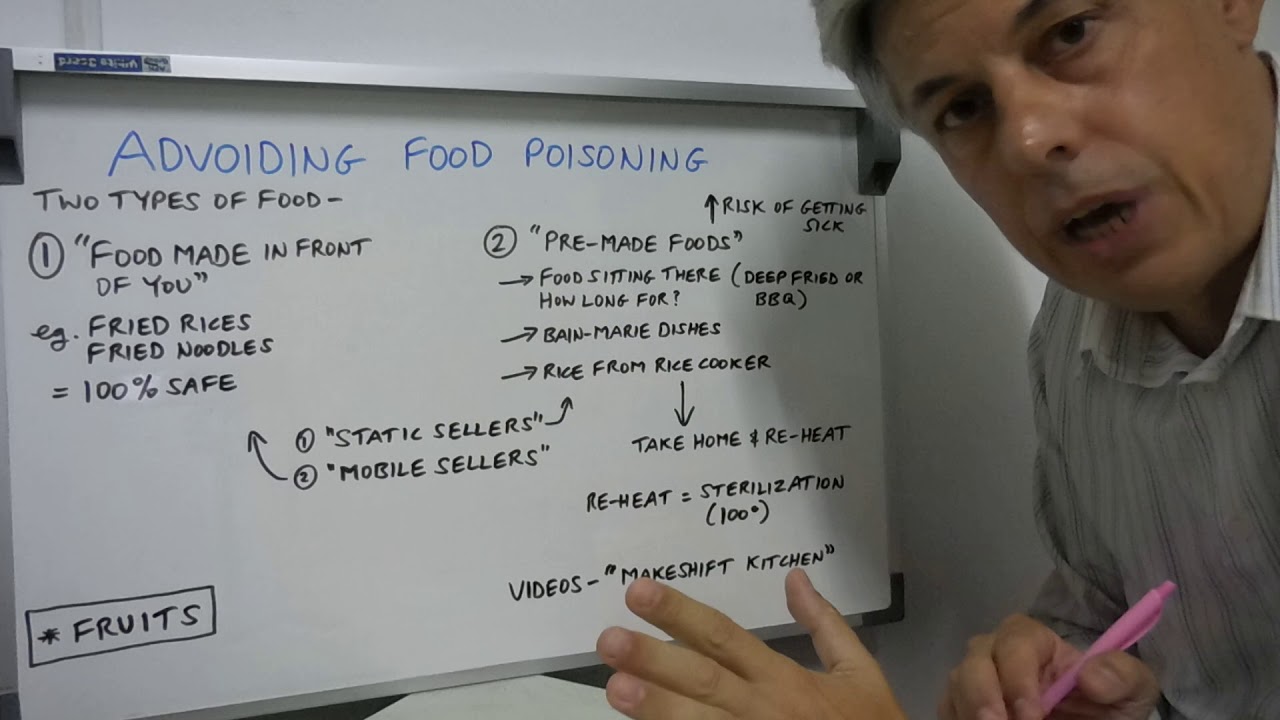 White Board
ADVOIDING FOOD POISONING
TWO TYPES OF FOOD -
① "FOOD MADE IN FRONT
OF YOU"
eg. FRIED RICES
FRIED NOODLES
= 100% SAFE
↑ RISK OF GETTING
SICK
② "PRE-MADE FOODS"
→ FOOD SITTING THERE (DEEP FRIED OR
HOW LONG FOR? BBQ)
→ BAIN-MARIE DISHES
→ RICE FROM RICE COOKER
① "STATIC SELLERS"
② "MOBILE SELLERS"
TAKE HOME & RE-HEAT
RE-HEAT = STERILIZATION
(100°)
VIDEOS - "MAKESHIFT KITCHEN"
* FRUITS